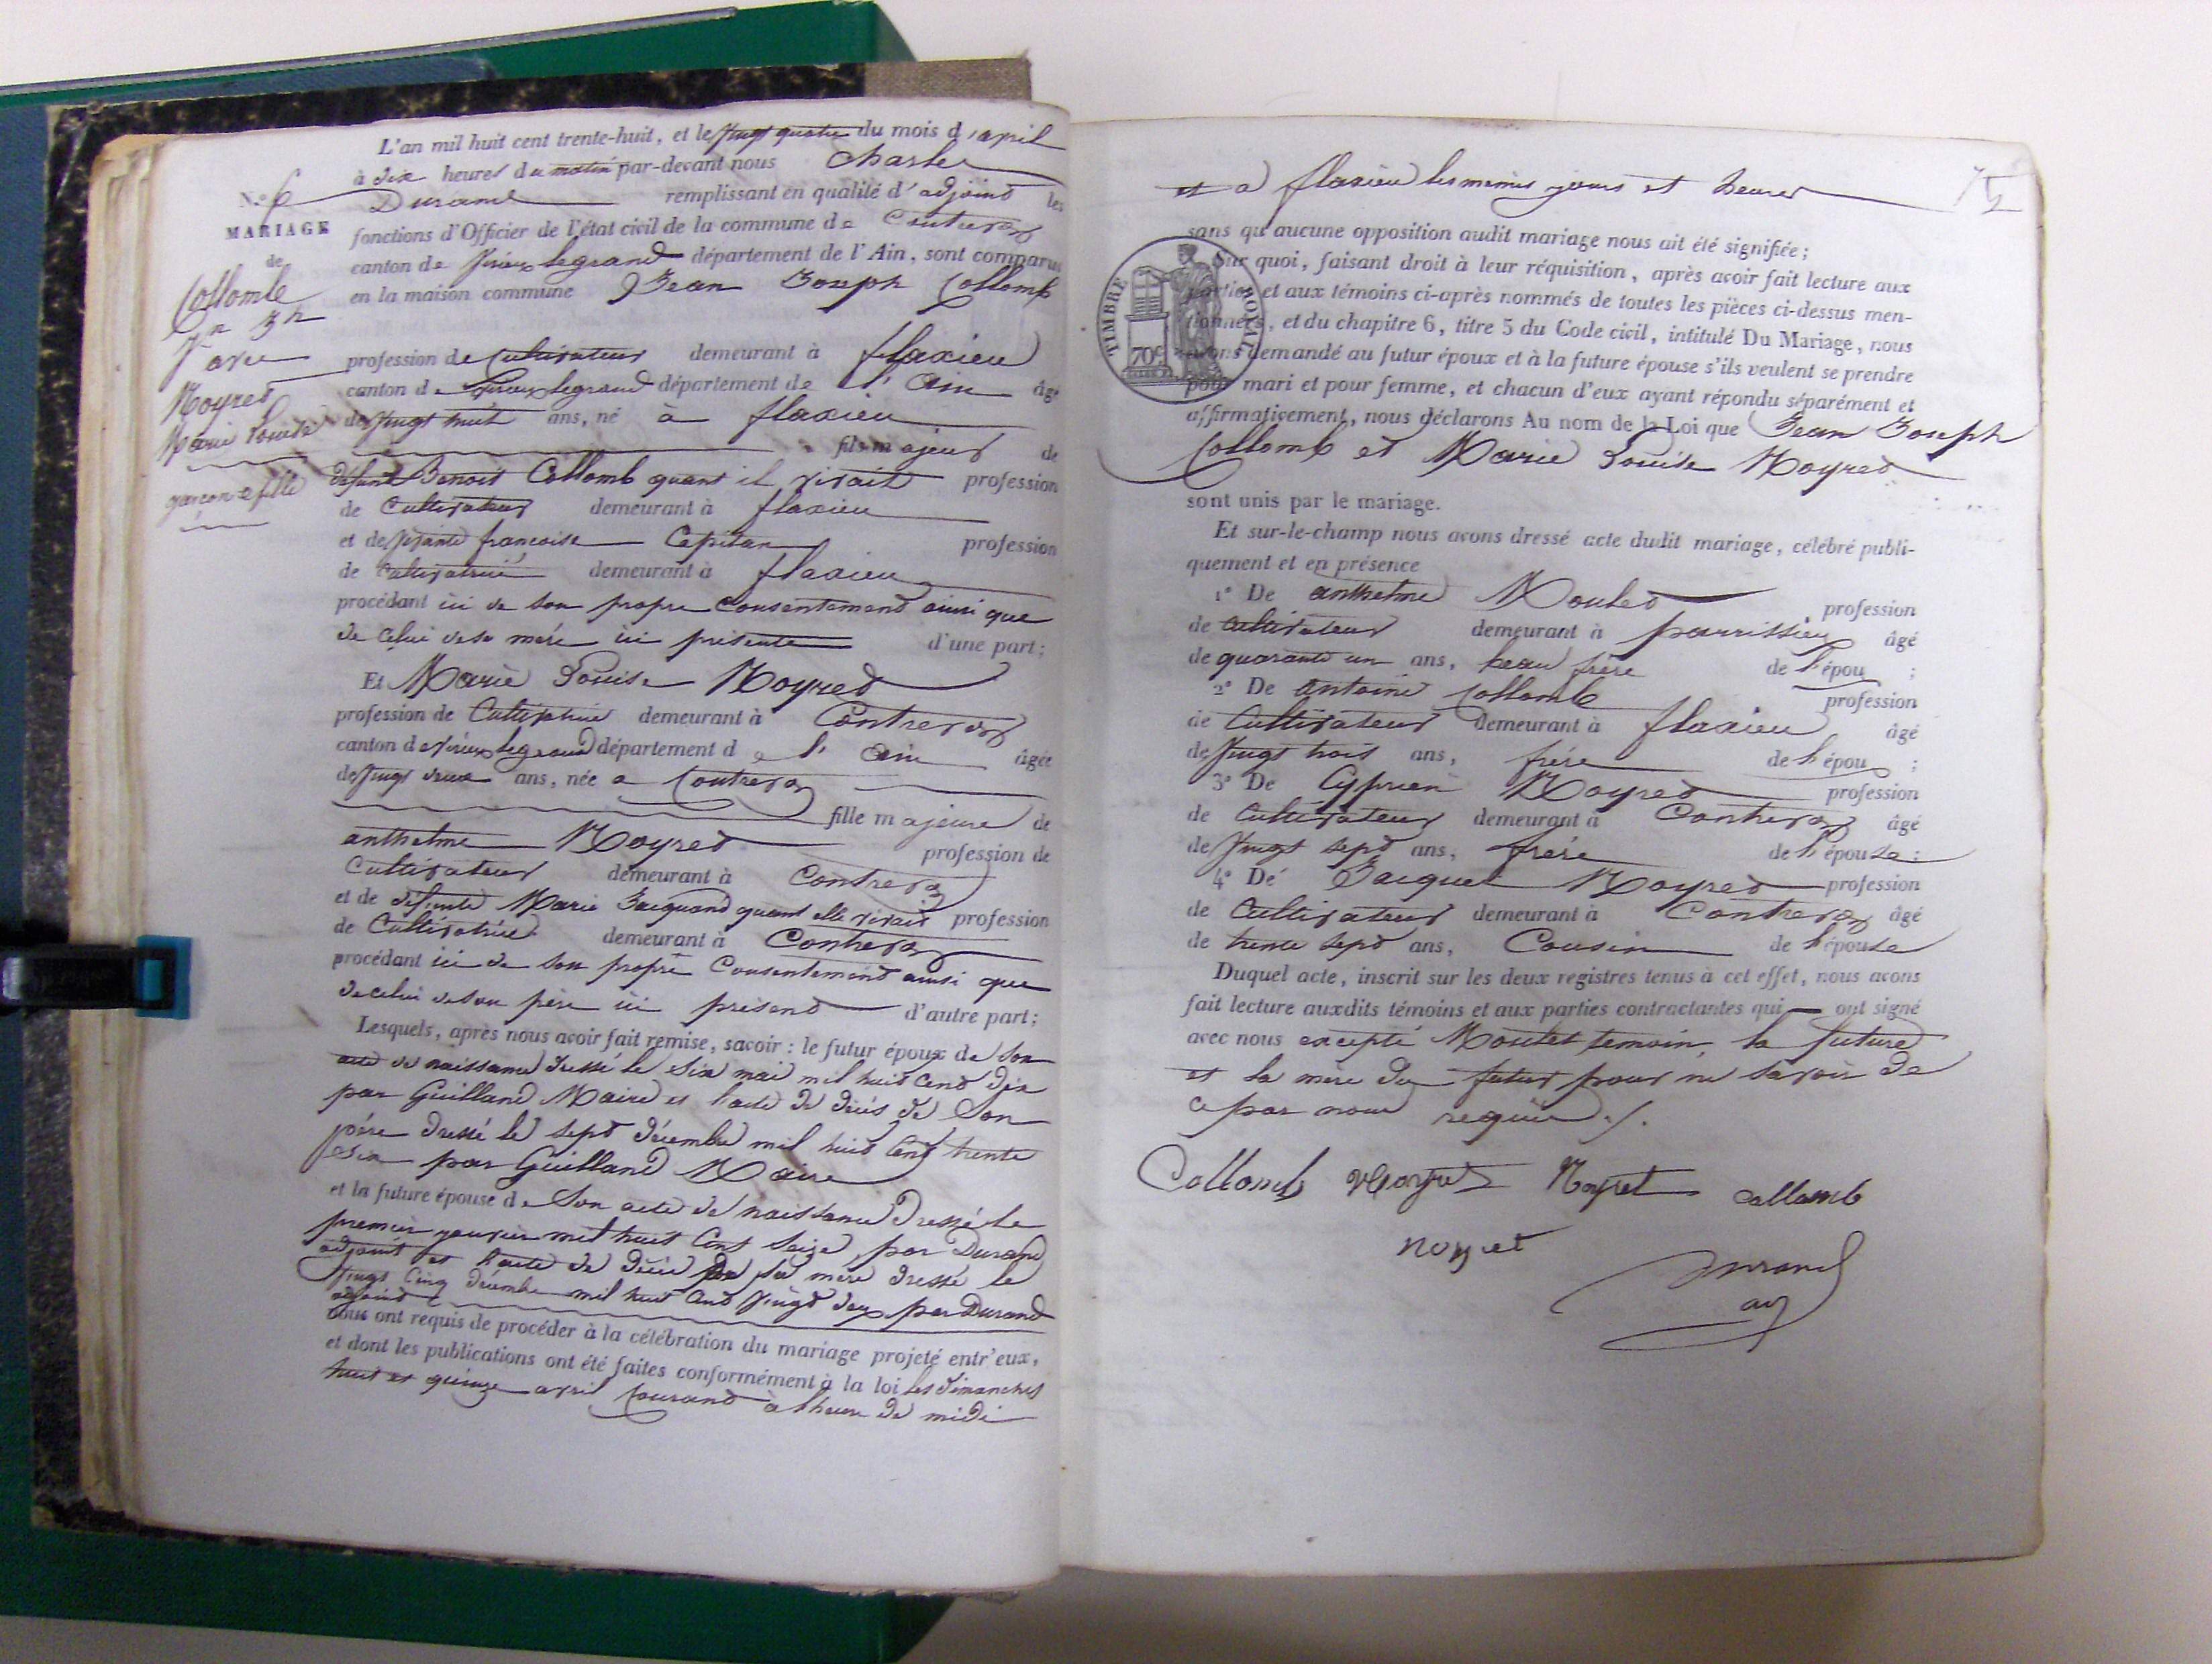 L'an mil huit cent trente-huit, et le vingt quatre du mois d'avril
à dix heures du matin par-devant nous Charles
N.° 6 Durand remplissant en qualité d'adjoint les
MARIAGE
fonctions d'Officier de l'état civil de la commune de Contrevoz
de
canton de Virieux legrand département de l'Ain, sont comparus
Collomb
en la maison commune Jean Joseph Collomb
Jn Jh
avec
profession de Cultivateur demeurant à flaxieu
Moyret
canton de Virieux legrand département de l'ain âgé
Marie Louise
de vingt huit ans, né à flaxieu
fils majeur de
garçon et fille
défunt Benoit Collomb quant il vivait profession
de Cultivateur demeurant à flaxieu
et de vivante francoise Capitan profession
de Cultivatrice demeurant à flaxieu
procédant ici de son propre consentement ainsi que
de celui de sa mère ici présente d'une part;
Et Marie Louise Moyret
profession de Cultivatrice demeurant à Contrevoz
canton de virieux legrand département de l'ain âgée
de vingt deux ans, née a Contrevoz
fille majeure de
anthelme Moyret profession de
Cultivateur demeurant à Contrevoz
et de défunte Marie Jacquand quant elle vivait profession
de Cultivatrice demeurant à Contrevoz
procédant ici de son propre consentement ainsi que
de celui de son père ici présent d'autre part;
Lesquels, après nous avoir fait remise, savoir: le futur époux de son
acte de naissance dressé le six mai mil huit cent dix
par Guilland Maire et l'acte de décès de son
père dressé le sept décembre mil huit cent trente
six par Guilland Maire
et la future épouse de son acte de naissance dressé le
premier janvier mil huit cent seize par Durand
adjoint et l'acte de décès de sa mère dressé le
vingt cinq décembre mil huit cent vingt deux par Durand
adjoint
nous ont requis de procéder à la célébration du mariage projeté entr'eux,
et dont les publications ont été faites conformément à la loi les dimanches
huit et quinze avril courant à l'heure de midi
et a flaxieu les memes jours et heures
sans qu'aucune opposition audit mariage nous ait été signifiée;
Sur quoi, faisant droit à leur réquisition, après avoir fait lecture aux
parties et aux témoins ci-après nommés de toutes les pièces ci-dessus men-
tionnées, et du chapitre 6, titre 5 du Code civil, intitulé Du Mariage, nous
avons demandé au futur époux et à la future épouse s'ils veulent se prendre
pour mari et pour femme, et chacun d'eux ayant répondu séparément et
affirmativement, nous déclarons Au nom de la Loi que Jean Joseph
Collomb et Marie Louise Moyret
TIMBRE ROYAL
70c
sont unis par le mariage.
Et sur-le-champ nous avons dressé acte dudit mariage, célébré publi-
quement et en présence
1° De anthelme Moulet profession
de Cultivateur demeurant à parrissieu âgé
de quarante un ans, beau frère de l'épou ;
2° De antoine Collomb profession
de Cultivateur demeurant à flaxieu âgé
de vingt trois ans, frére de l'époux ;
3° De Cyprien Moyret profession
de Cultivateur demeurant à Contrevoz âgé
de vingt sept ans, frére de l'épouse ;
4° De Jacques Moyret profession
de Cultivateur demeurant à Contrevoz âgé
de trente sept ans, Cousin de l'épouse
Duquel acte, inscrit sur les deux registres tenus à cet effet, nous avons
fait lecture auxdits témoins et aux parties contractantes qui ont signé
avec nous excepté Moulet temoin, la future
et la mère du futur pour ne savoir de
ce par nous requis ./.
Collomb Moyret Moyret collomb
noyret
Durand
adj